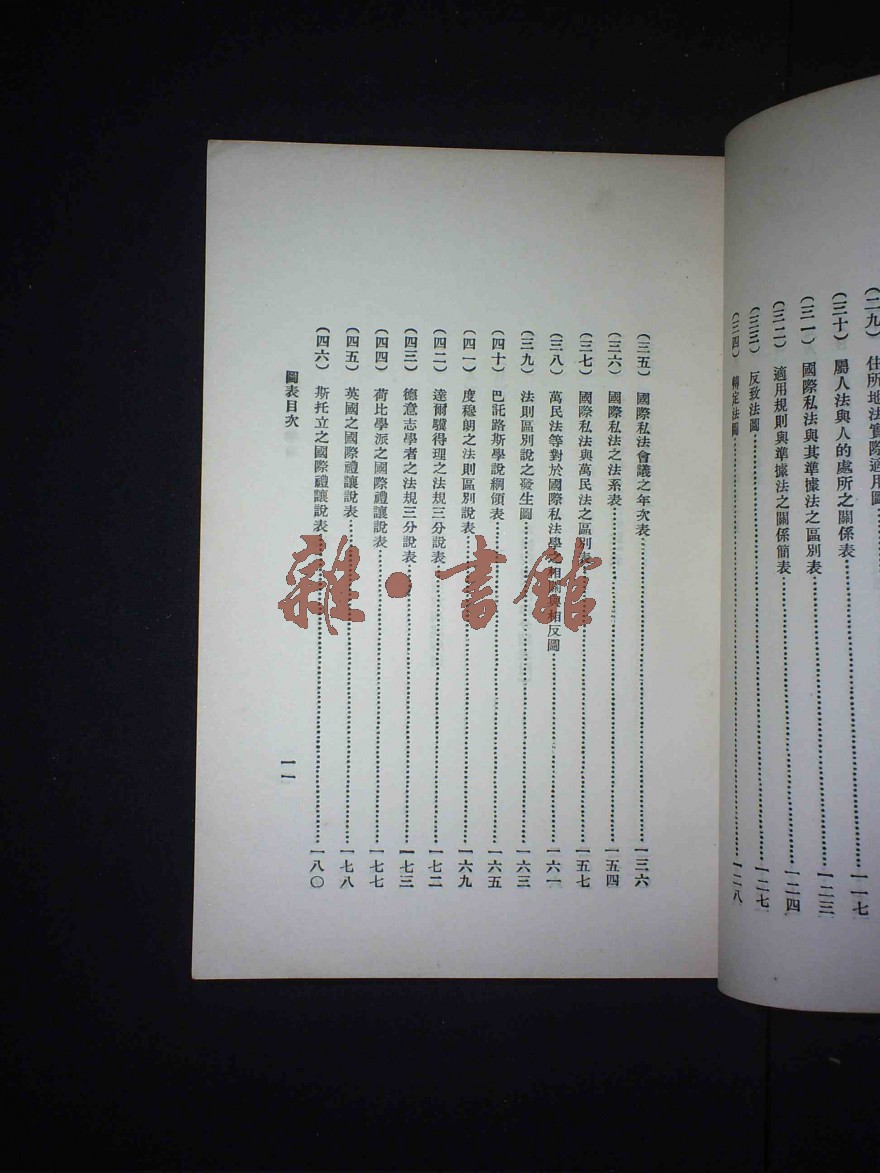 (二九) 住所地法實際適用圖
(三十) 屬人法與人的處所之關係表……一一七
(三一) 國際私法與其準據法之區別表……一二三
(三二) 適用規則與準據法之關係簡表……一二四
(三三) 反致法圖……一二七
(三四) 轉定法圖……一二八
(三五) 國際私法會議之年次表……一三六
(三六) 國際私法之法系表……一五四
(三七) 國際私法與萬民法之區別表……一五七
(三八) 萬民法等對於國際私法學之相關與相反圖……一六一
(三九) 法則區別說之發生圖……一六三
(四十) 巴託路斯學說綱領表……一六五
(四一) 度穆朗之法則區別說表……一六九
(四二) 達爾騾得理之法規三分說表……一七二
(四三) 德意志學者之法規三分說表……一七三
(四四) 荷比學派之國際禮讓說表……一七七
(四五) 英國之國際禮讓說表……一七八
(四六) 斯托立之國際禮讓說表……一八〇
圖表目次
一一
雜·書館